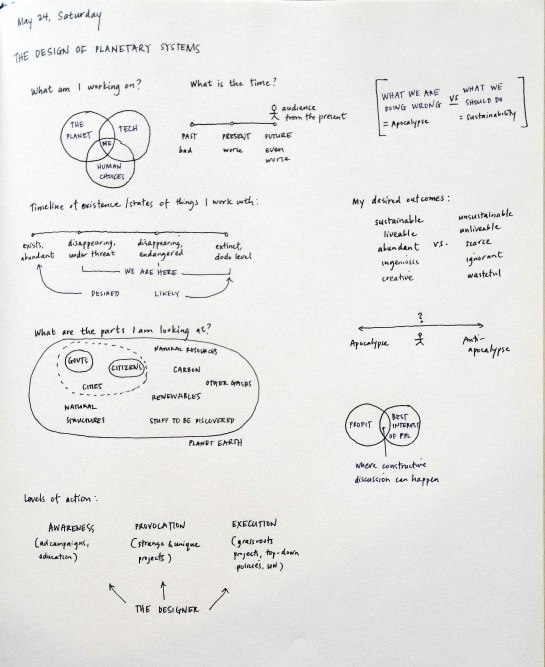 May 24, Saturday
THE DESIGN OF PLANETARY SYSTEMS
What am I working on?
THE
PLANET
TECH
ME
HUMAN
CHOICES
What is the time?
audience
from the present
PAST
PRESENT
FUTURE
bad
worse
even
worse
WHAT WE ARE
DOING WRONG
= Apocalypse
VS
WHAT WE
SHOULD DO
= Sustainability
Timeline of existence/states of things I work with:
exists,
abundant
disappearing,
under threat
disappearing,
endangered
extinct,
dodo level
WE ARE HERE
DESIRED
LIKELY
My desired outcomes:
sustainable
liveable
abundant
ingenious
creative
vs.
unsustainable
unliveable
scarce
ignorant
wasteful
?
Apocalypse
Anti-
apocalypse
What are the parts I am looking at?
GOVTS
CITIZENS
CITIES
NATURAL RESOURCES
CARBON
OTHER GASES
RENEWABLES
NATURAL
STRUCTURES
STUFF TO BE DISCOVERED
PLANET EARTH
PROFIT
BEST
INTERESTS
OF PPL
where constructive
discussion can happen
Levels of action:
AWARENESS
(ad campaigns,
education)
PROVOCATION
(strange & unique
projects)
EXECUTION
(grassroots
projects, top-down
policies, UN)
THE DESIGNER